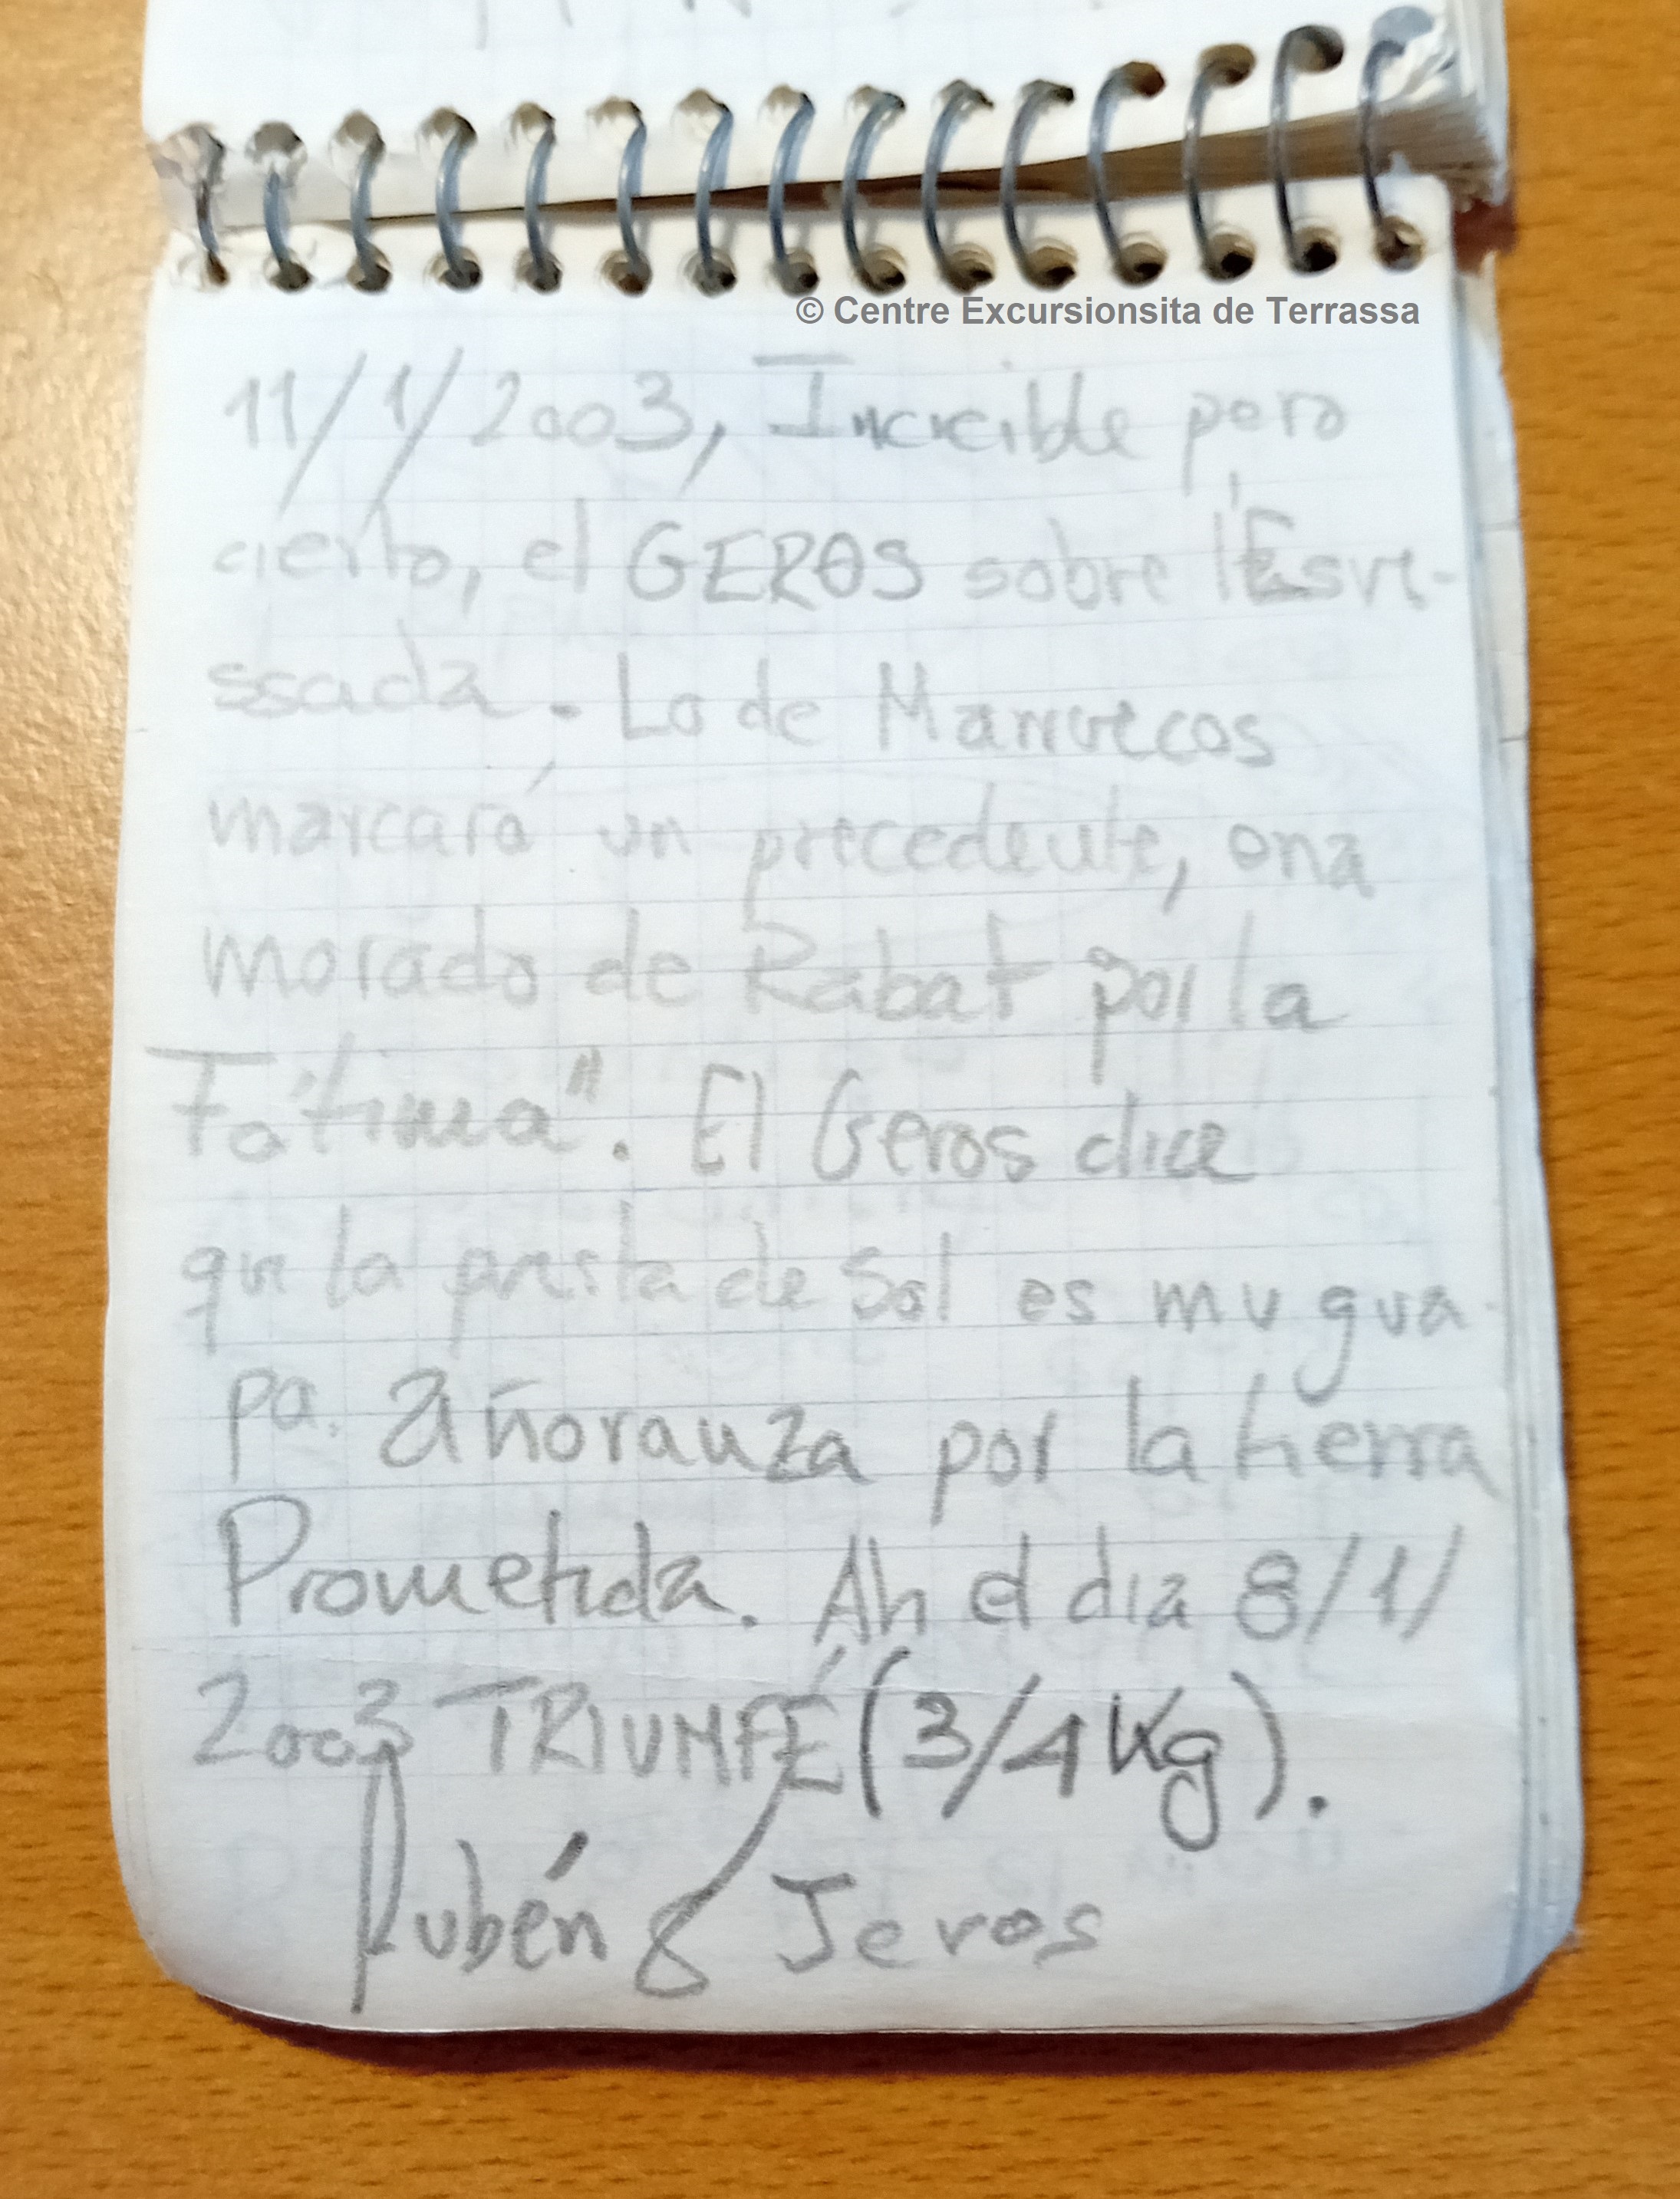 © Centre Excursionsita de Terrassa
11/1/2003, Increible pero
cierto, el GEROS sobre l'Esvi-
ssada. Lo de Marruecos
marcará un precedente, ona
morado de Rabat por la
Fátima". El Geros dice
qu la puesta de Sol es mu gua
pa. Añoranza por la tierra
Prometida. Ah el dia 8/1/
2003 TRIUMFÉ (3/4 Kg).
Rubén & Jeros